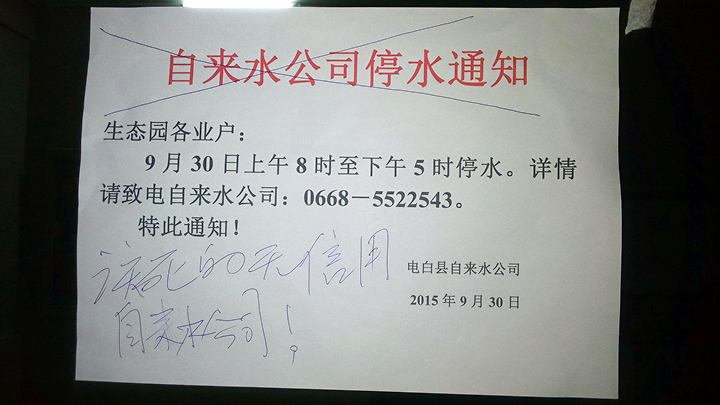 自来水公司停水通知
生态园各业户：
9月30日上午8时至下午5时停水。详情
请致电自来水公司：0668－5522543。
特此通知！
该死的无信用
自来水公司！
电白县自来水公司
2015年9月30日